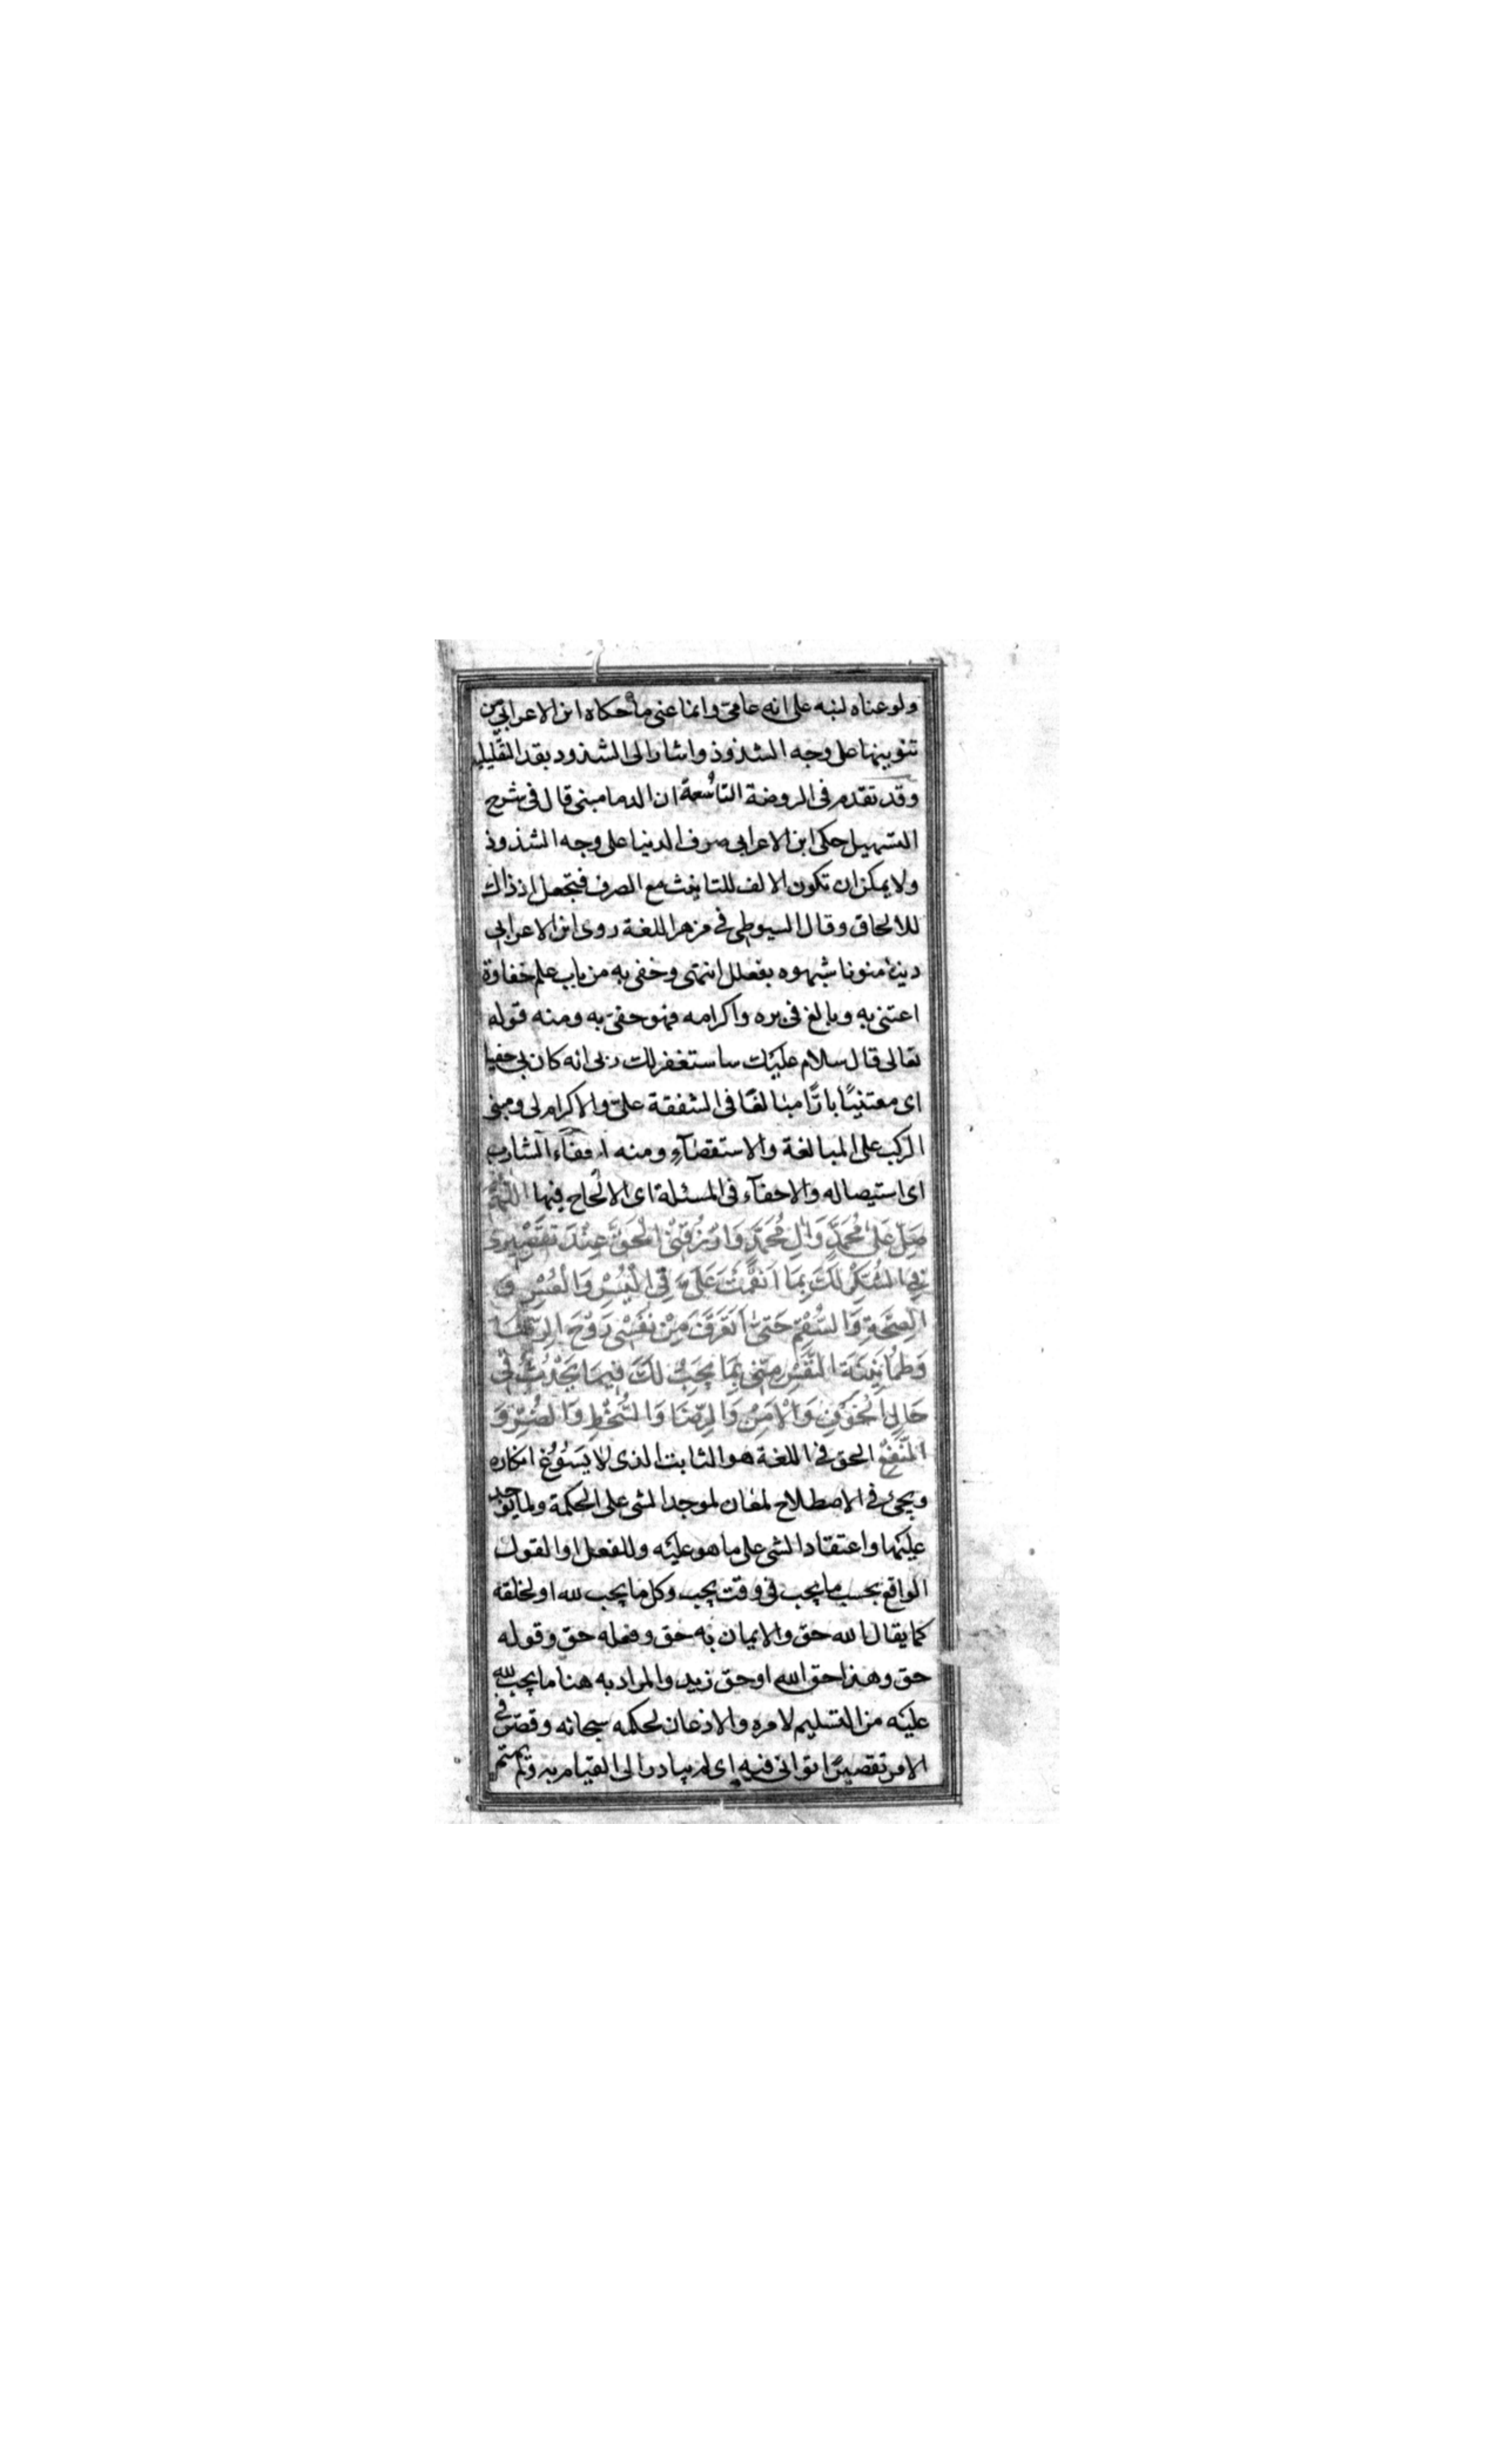 ولو عناه لنبه على انه عامىّ وانما عنى ما حكاه ابن الاعرابي من
تنوينها على وجه الشذوذ واشار الى الشذوذ بقد التقليلية
وقد تقدم فى الروضة التاسعة ان الدمامينى قال فى شرح
التسهيل حكى ابن الاعرابى صرف الدنيا على وجه الشذوذ
ولا يمكن ان تكون الالف للتانيث مع الصرف فتجعل اذ ذاك
للالحاق وقال السيوطى فى مزهر اللغة روى ابن الاعرابى
دينا منونا شبهوه بفعلل انتهى وحفى به من باب علم حفاوة
اعتنى به وبالغ فى بره واكرامه فهو حفىّ به ومنه قوله
تعالى قال سلام عليك ساستغفر لك ربى انه كان بى حفيا
اى معتنيًا بارًّا مبالغًا فى الشفقة علىّ والاكرام لى ومبنى
التركيب على المبالغة والاستقصآء ومنه احفآء الشارب
اى استيصاله والاحفآء فى المسئلة اى الالحاح فيها اَللّٰهُمَّ
صَلِّ عَلٰى مُحَمَّدٍ وَاٰلِ مُحَمَّدٍ وَارْزُقْنِى الْحَقَّ عِنْدَ تَقْصِيرِى
فِى الشُّكْرِ لَكَ بِمَا اَنْعَمْتَ عَلَىَّ فِى الْيُسْرِ وَالْعُسْرِ وَ
الصِّحَّةِ وَالسُّقْمِ حَتّٰى اَتَعَرَّفَ مِنْ نَفْسِى رَوْحَ الرِّضَا
وَطُمَأْنِينَةَ النَّفْسِ مِنِّى بِمَا يَجِبُ لَكَ فِيمَا يَحْدُثُ فِى
حَالِ الْخَوْفِ وَالْاَمْنِ وَالرِّضَا وَالسُّخْطِ وَالضُّرِّ وَ
النَّفْعِ الحق فى اللغة هو الثابت الذى لا يَسُوْغُ انكاره
ويجئ فى الاصطلاح لمعان لموجد الشى على الحكمة ولما يوجد
عليها واعتقاد الشى على ما هو عليه وللفعل او القول
الواقع بحسب ما يجب فى وقت يجب وكل ما يجب لله او لخلقه
كما يقال الله حق والايمان به حق وفعله حق وقوله
حق وهذا حق الله او حق زيد والمراد به هنا ما يجب لله
عليه من التسليم لامره والاذعان لحكمه سبحانه وقصّر فى
الامر تقصيرًا توانى فيه اى لم يبادر الى القيام به ولم